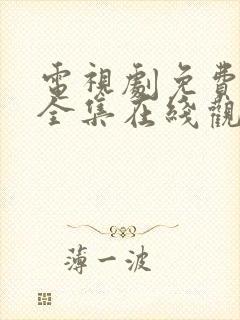 電視劇免費
全集在綫觀
薄一波